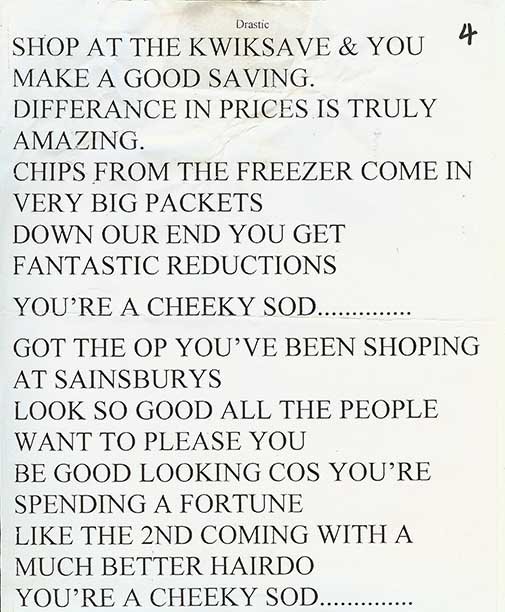 Drastic
4
SHOP AT THE KWIKSAVE & YOU
MAKE A GOOD SAVING.
DIFFERANCE IN PRICES IS TRULY
AMAZING.
CHIPS FROM THE FREEZER COME IN
VERY BIG PACKETS
DOWN OUR END YOU GET
FANTASTIC REDUCTIONS
YOU'RE A CHEEKY SOD..............
GOT THE OP YOU'VE BEEN SHOPING
AT SAINSBURYS
LOOK SO GOOD ALL THE PEOPLE
WANT TO PLEASE YOU
BE GOOD LOOKING COS YOU'RE
SPENDING A FORTUNE
LIKE THE 2ND COMING WITH A
MUCH BETTER HAIRDO
YOU'RE A CHEEKY SOD..............